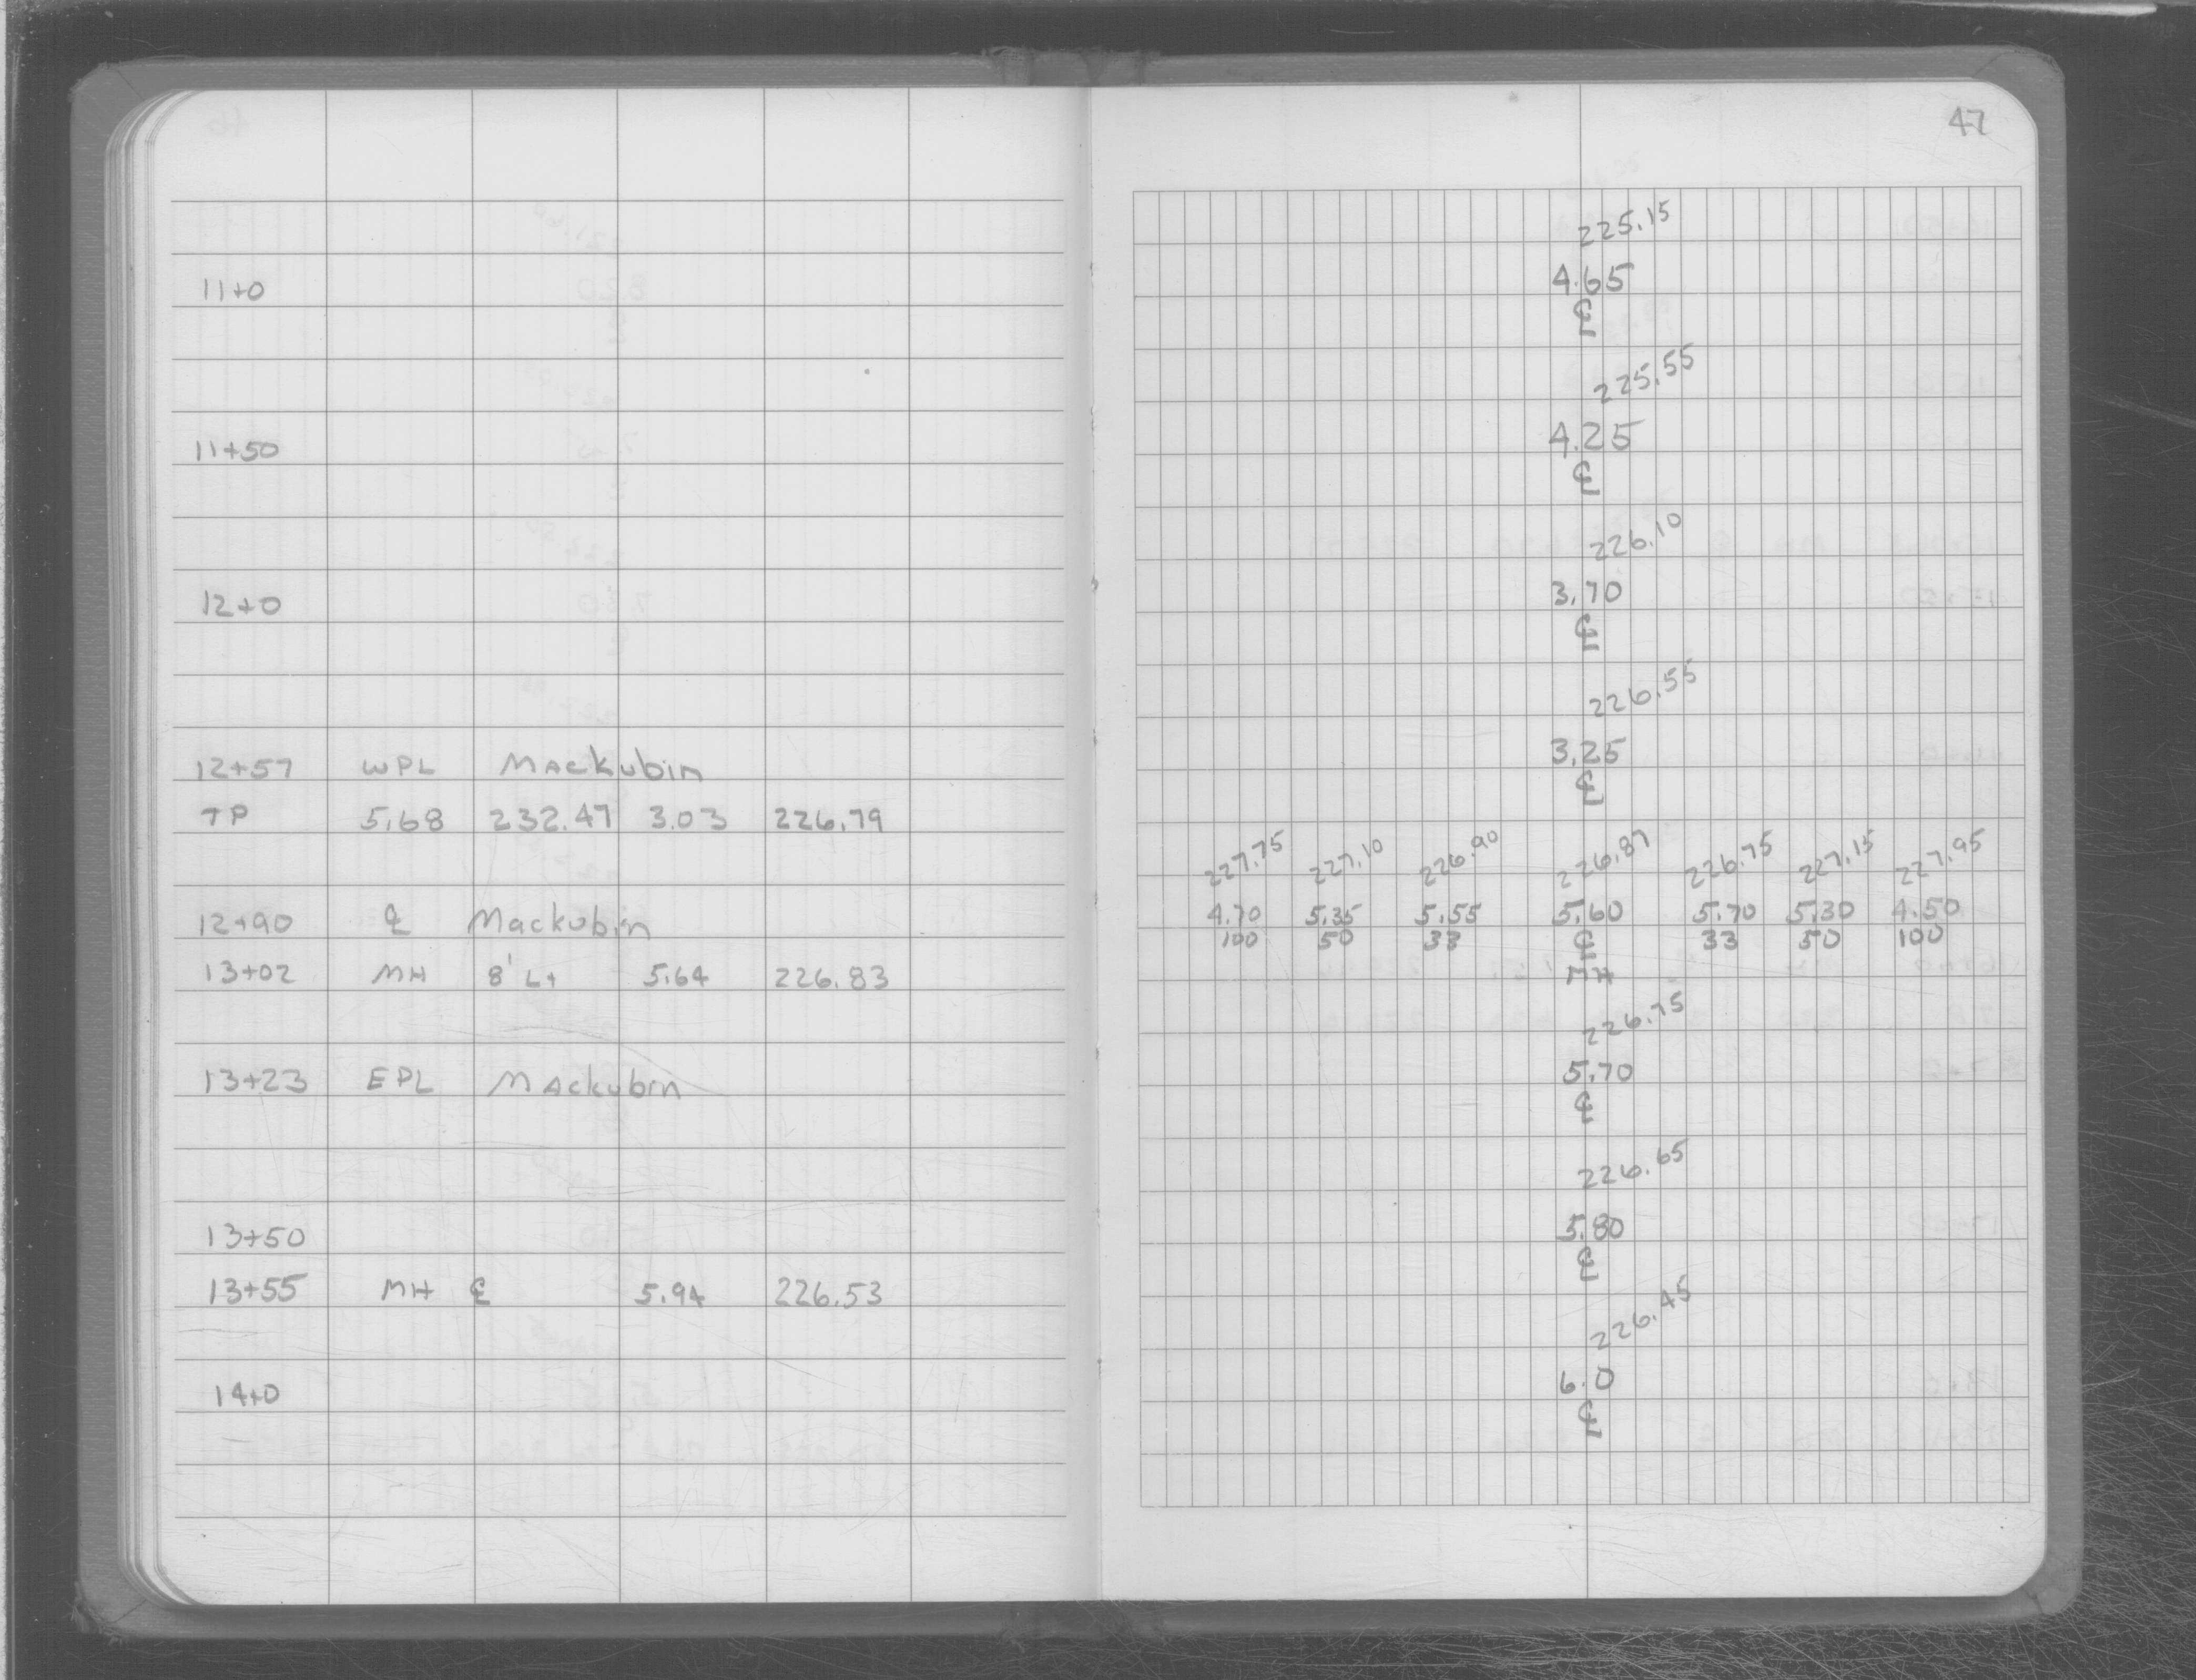 47
225.15
11+0 4.65
℄
225.55
11+50 4.25
℄
226.10
12+0 3.70
℄
226.55
12+57 WPL Mackubin 3.25
℄
TP 5.68 232.47 3.03 226.79
227.75 227.10 226.90 226.87 226.75 227.15 227.95
12+90 ℄ Mackubin 4.70 5.35 5.55 5.60 5.70 5.30 4.50
100 50 33 ℄ 33 50 100
13+02 MH 8' Lt 5.64 226.83 MH
226.75
13+23 EPL Mackubin 5.70
℄
226.65
13+50 5.80
℄
13+55 MH ℄ 5.94 226.53
226.45
14+0 6.0
℄